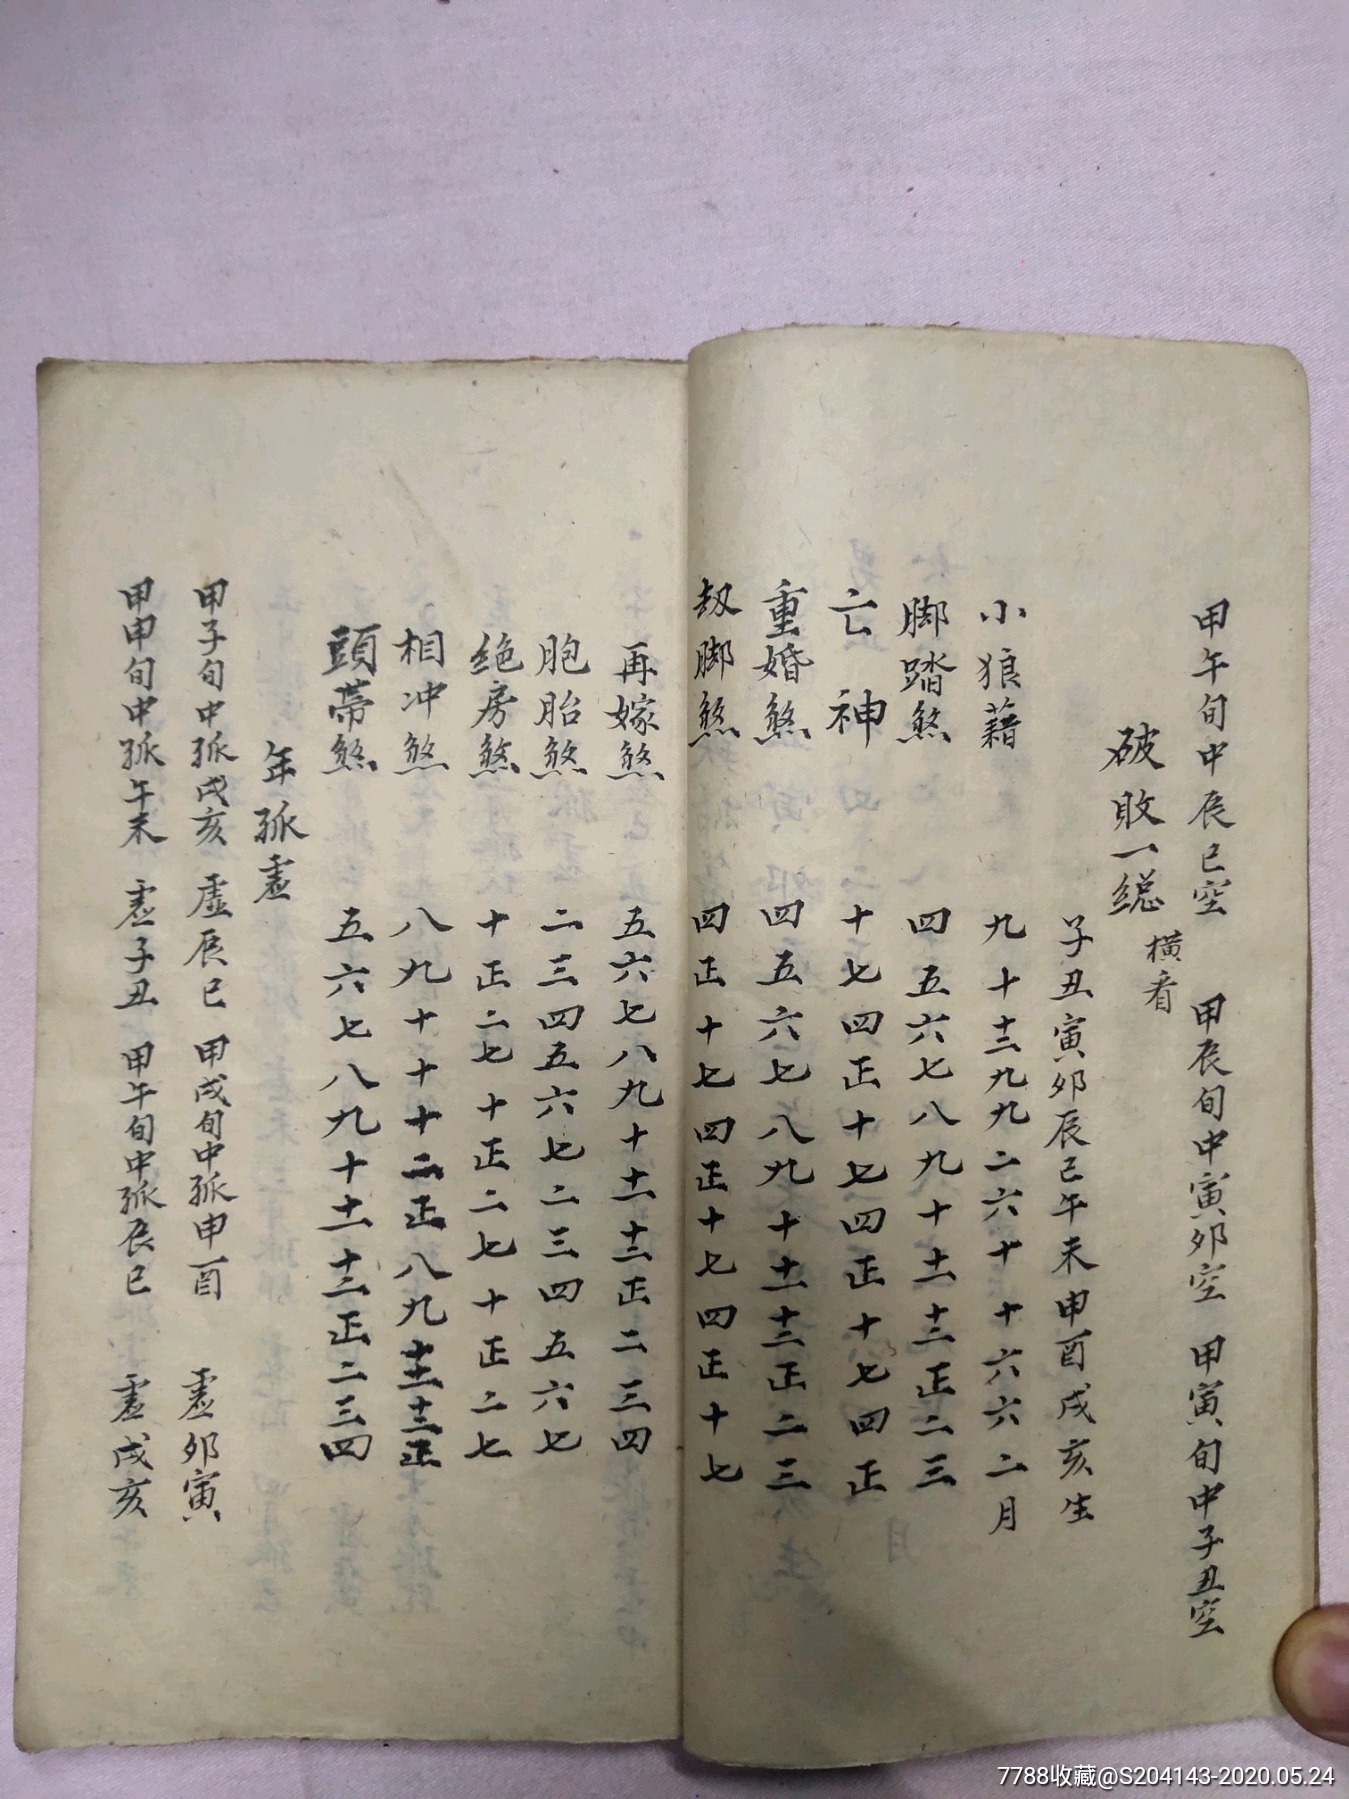 甲午旬中辰巳空 甲辰旬中寅夘空 甲寅旬中子丑空
破敗一總 橫看
子丑寅夘辰巳午未申酉戌亥生
小狼藉 九十十二九九二六十十六六二月
脚踏煞 四五六七八九十十一十二正二三
亡神 十七四正十七四正十七四正
重婚煞 四五六七八九十十一十二正二三
刼脚煞 四正十七四正十七四正十七
再嫁煞 五六七八九十十一十二正二三四
胞胎煞 二三四五六七二三四五六七
绝房煞 十正二七十正二七十正二七
相冲煞 八九十十十二正八九十一十二正
頭帶煞 五六七八九十十一十二正二三四
年孤虛
甲子旬中孤戌亥 虛辰巳 甲戌旬中孤申酉 虛夘寅
甲申旬中孤午未 虛子丑 甲午旬中孤辰巳 虛戌亥
7788收藏@S204143-2020.05.24